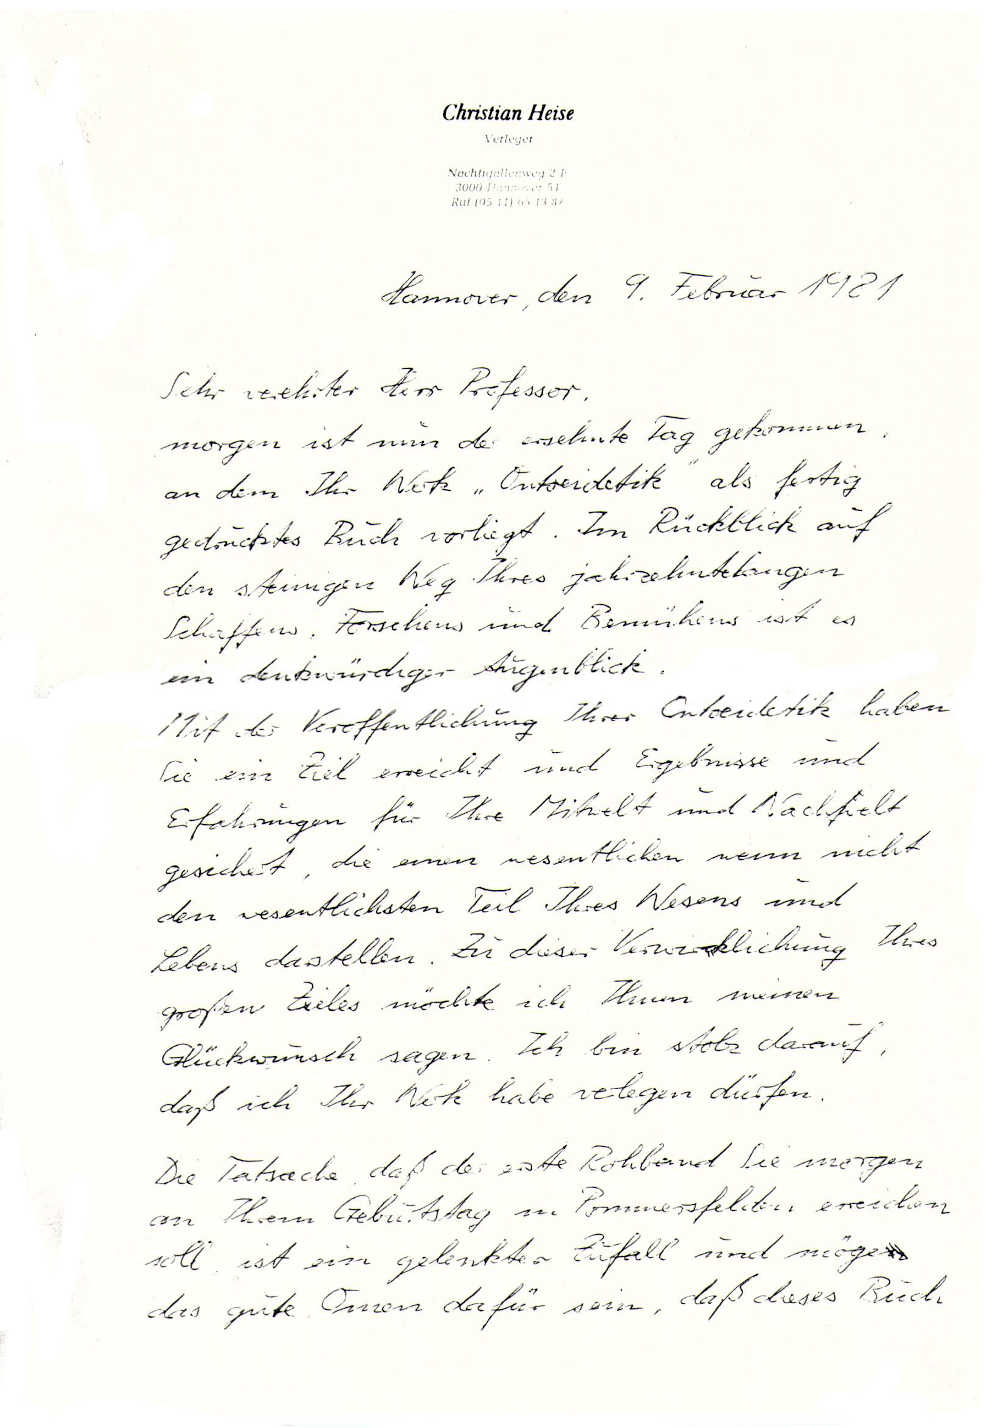 Christian Heise
Verleger
Nachtigallenweg 2
3000 Hannover 51
Ruf (05 11) 65 13 87
Hannover, den 9. Februar 1981
Sehr verehrter Herr Professor,
morgen ist nun der ersehnte Tag gekommen,
an dem Ihr Werk „Ontoeidetik" als fertig
gedrucktes Buch vorliegt. Im Rückblick auf
den steinigen Weg Ihres jahrzehntelangen
Schaffens, Forschens und Bemühens ist es
ein denkwürdiger Augenblick.
Mit der Veröffentlichung Ihrer Ontoeidetik haben
Sie ein Ziel erreicht und Ergebnisse und
Erfahrungen für Ihre Mitwelt und Nachwelt
gesichert, die einen wesentlichen wenn nicht
den wesentlichsten Teil Ihres Wesens und
Lebens darstellen. Zu dieser Verwirklichung Ihres
großen Zieles möchte ich Ihnen meinen
Glückwunsch sagen. Ich bin stolz darauf,
daß ich Ihr Werk habe verlegen dürfen.
Die Tatsache, daß der erste Rohband Sie morgen
an Ihrem Geburtstag in Pommersfelden erreichen
soll, ist ein gelenkter Zufall und möge
das gute Omen dafür sein, daß dieses Buch